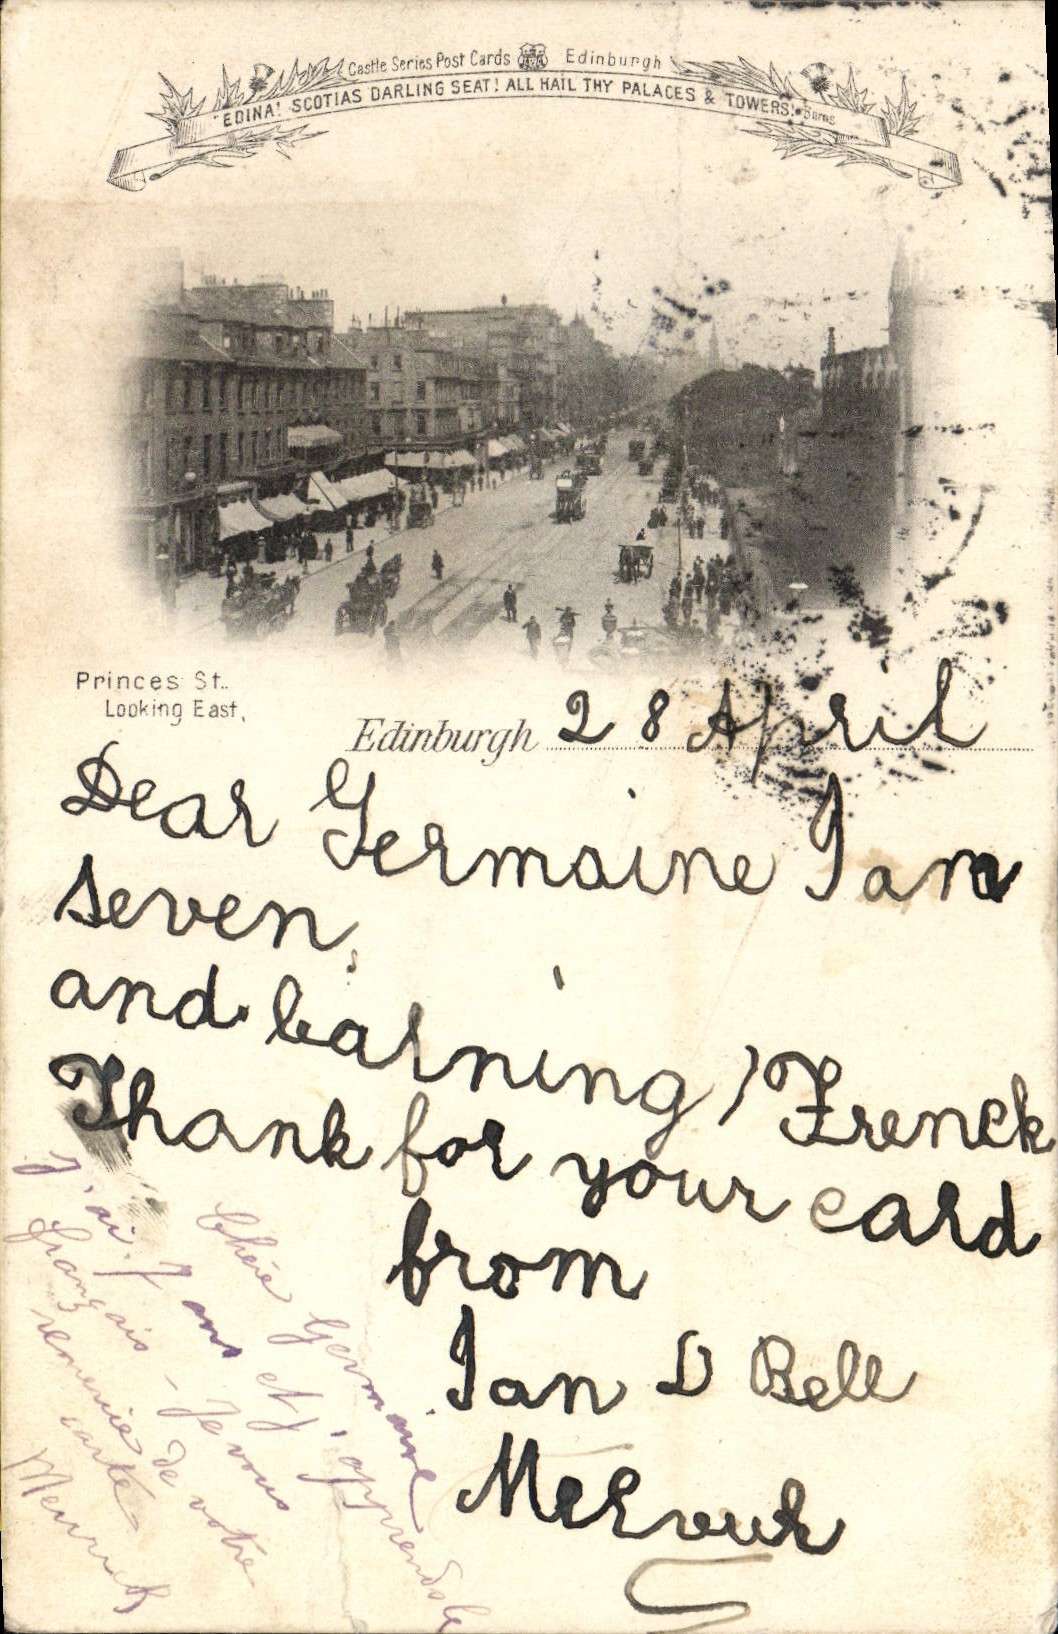 Castle Series Post Cards Edinburgh
"EDINA! SCOTIAS DARLING SEAT! ALL HAIL THY PALACES & TOWERS! Burns
Princes St.
Looking East,
Edinburgh 28 April
Dear Germaine I am
seven,
and learning French
Thank for your card
from
Ian D Bell
Chère Germaine
J'ai 7 ans et j'apprends le
français - Je vous
remercie de votre
carte